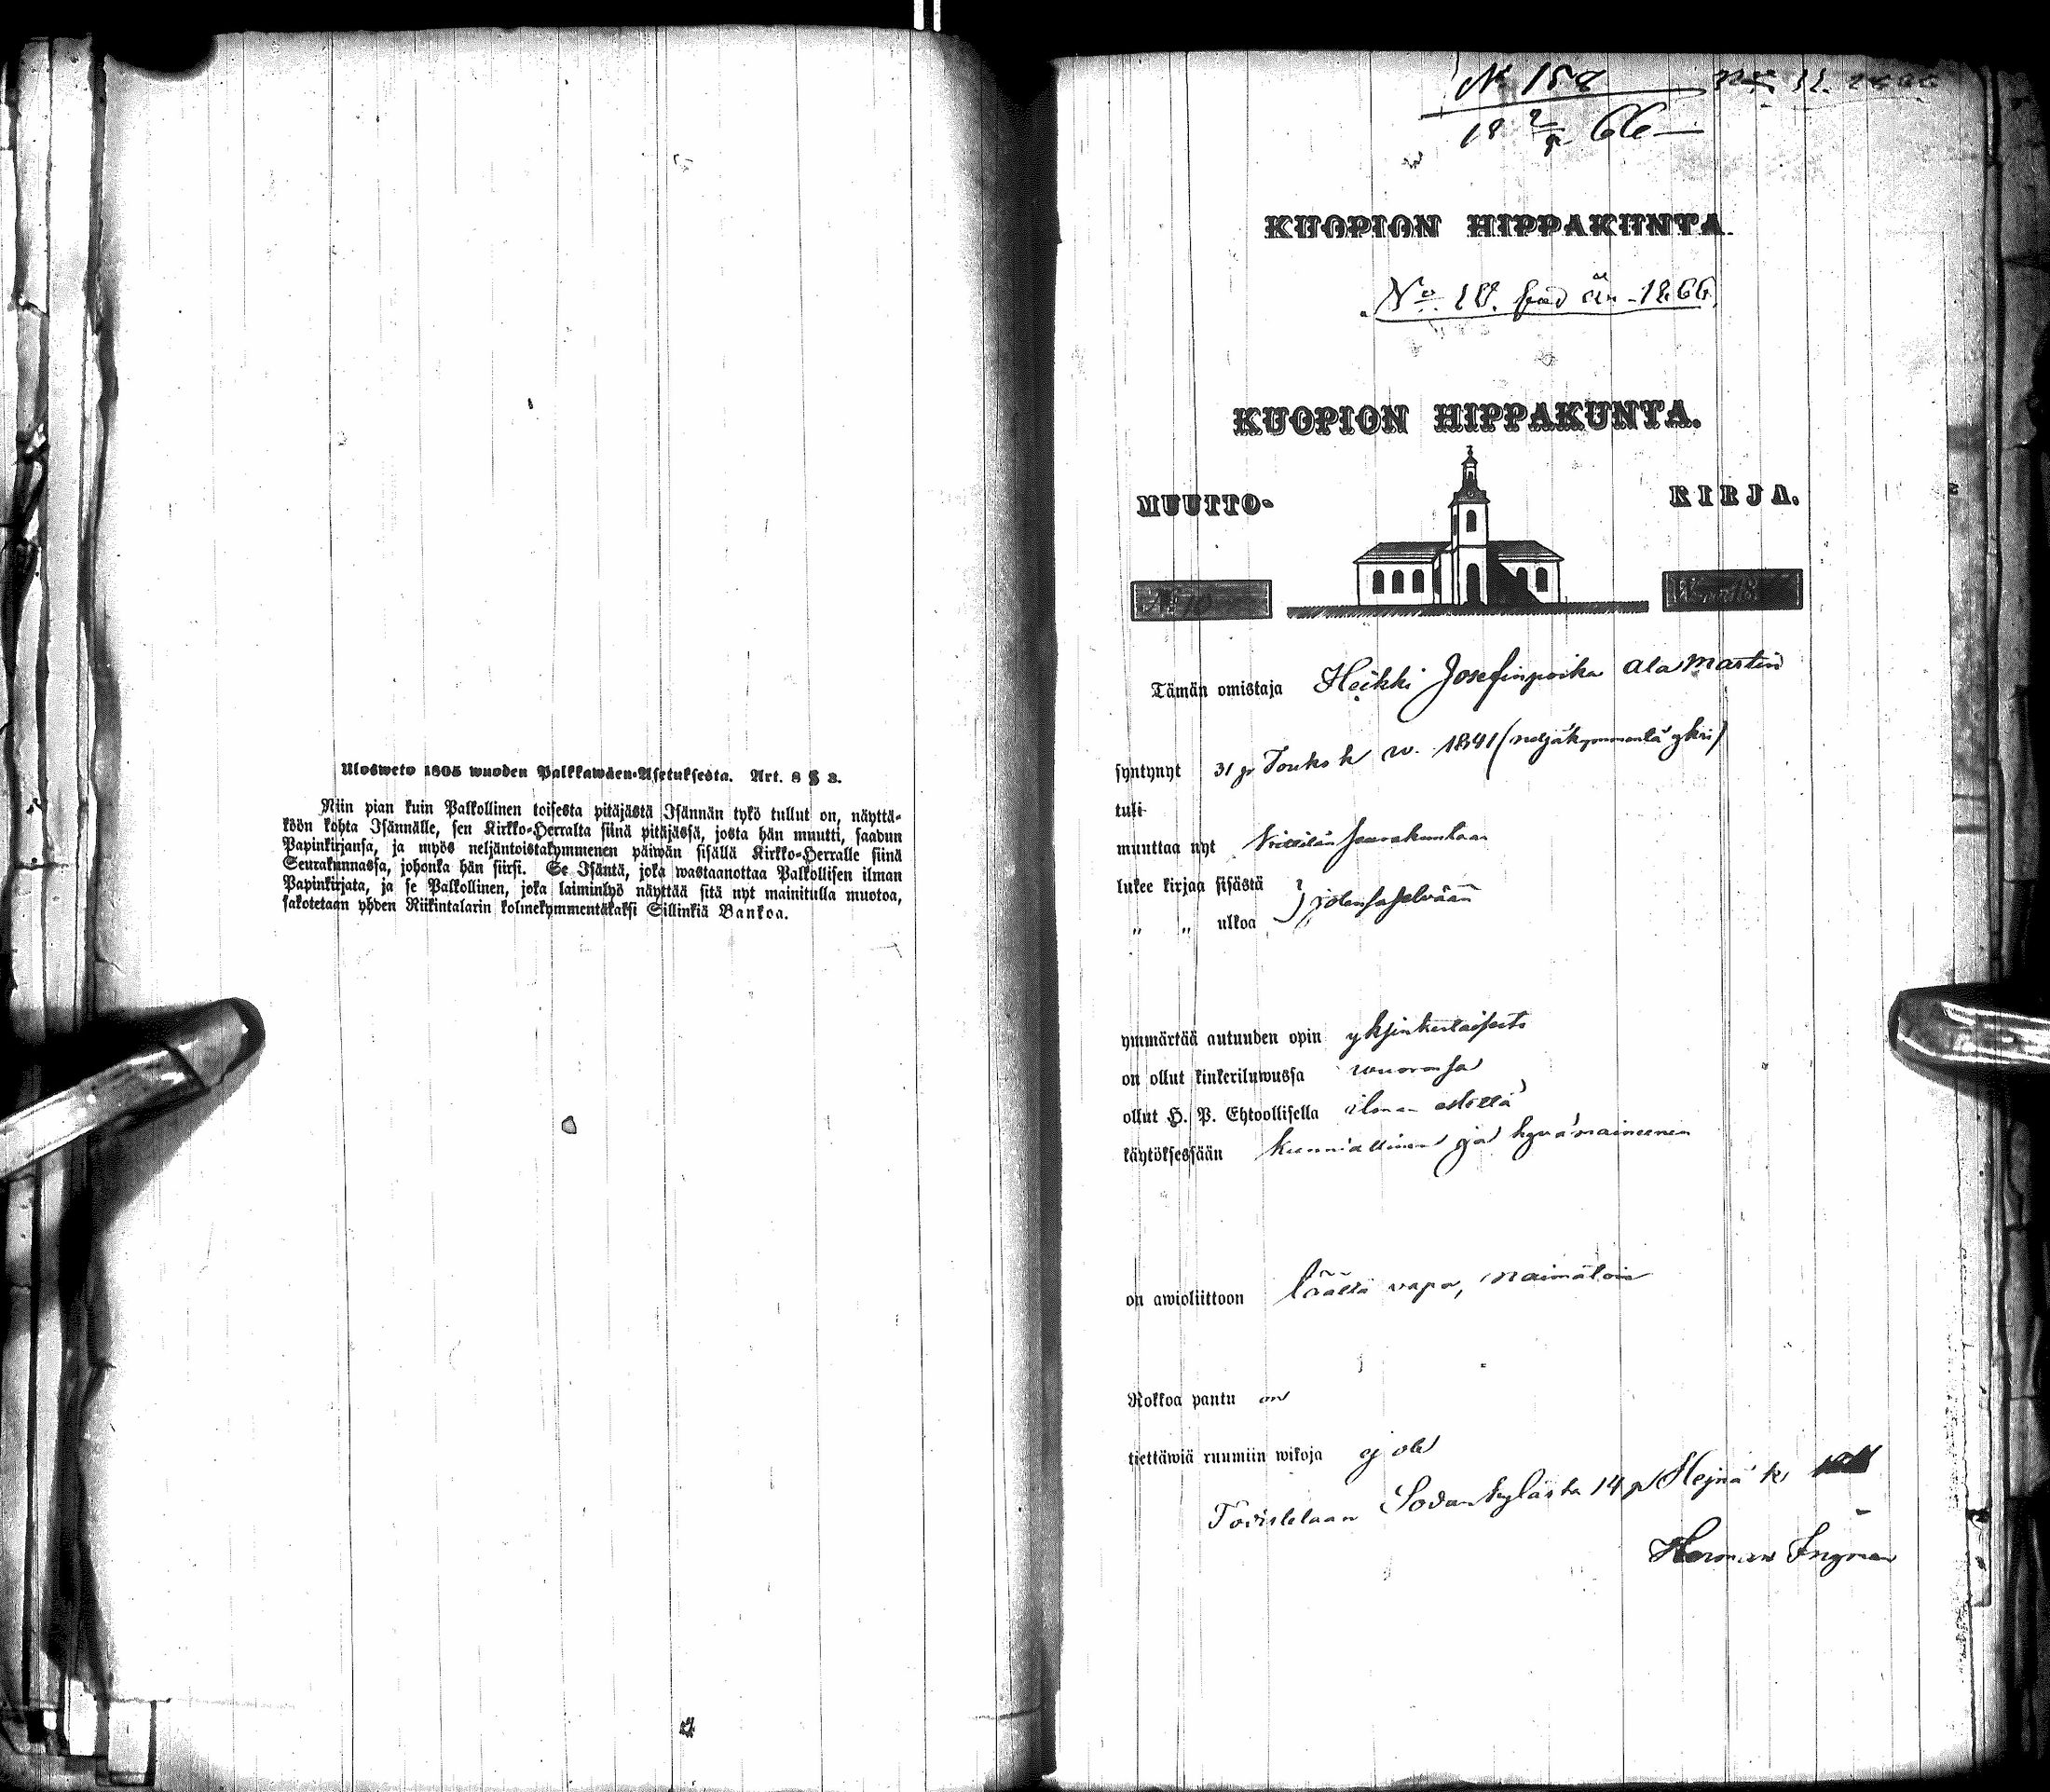 Ulosweto 1805 wuoden Palkkawäen-Asetuksesta. Art. 8 § 3.
Niin pian kuin Palkollinen toisesta pitäjästä Isännän tykö tullut on, näyttä-
köön kohta Isännälle, sen Kirkko-Herralta siinä pitäjässä, josta hän muutti, saadun
Papinkirjansa, ja myös neljäntoistakymmenen päiwän sisällä Kirkko-Herralle siinä
Seurakunnassa, johonka hän siirsi. Se Isäntä, joka wastaanottaa Palkollisen ilman
Papinkirjata, ja se Palkollinen, joka laiminlyö näyttää sitä nyt mainitulla muotoa,
sakotetaan yhden Riikintalarin kolmekymmentäkaksi Sillinkiä Bankoa.
KUOPION HIPPAKUNTA.
1866
KUOPION HIPPAKUNTA.
MUUTTO- KIRJA.
N:o 10
Tämän omistaja Heikki Josefinpoika Ala Martin
syntynyt 31 p Touko k w. 1841 (neljäkymmentä yksi)
tuli
muuttaa nyt Kittilän seurakuntaan
lukee kirjaa sisästä
„ „ ulkoa } jotensaselvään
ymmärtää autuuden opin yksinkertaisesti
on ollut kinkeriluwussa wuoronsa
ollut H. P. Ehtoollisella ilman
käytöksessään kunniallinen ja hyvämaineenen
on awioliittoon vapa, naimatoin
Rokkoa pantu on
tiettäwiä ruumiin wikoja ej ole
Todistetaan Sodankylästä 14 p Hejnä k
Herman Ingman